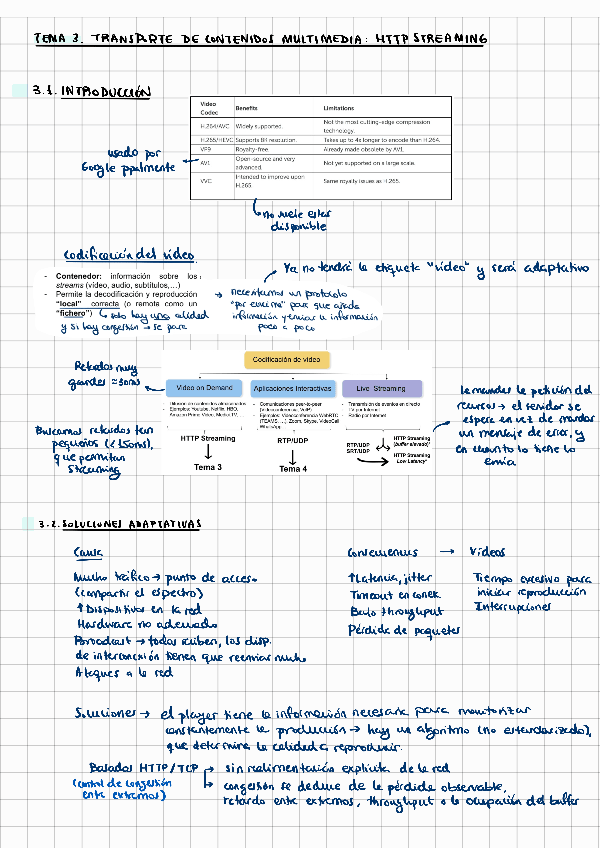 TEMA 3. TRANSPORTE DE CONTENIDOS MULTIMEDIA: HTTP STREAMING
3.1. INTRODUCCIÓN
Video Codec Benefits Limitations
H.264/AVC Widely supported. Not the most cutting-edge compression technology.
H.265/HEVC Supports 8K resolution. Takes up to 4x longer to encode than H.264.
VP9 Royalty-free. Already made obsolete by AV1.
AV1 Open-source and very advanced. Not yet supported on a large scale.
VVC Intended to improve upon H.265. Same royalty issues as H.265.
usado por
Google ppalmente
no suele estar
disponible
codificación del vídeo
Ya no tendrá la etiqueta "video" y será adaptativo
- Contenedor: información sobre los
streams (vídeo, audio, subtítulos,...)
- Permite la decodificación y reproducción
"local" correcta (o remota como un
"fichero") solo hay una calidad
y si hay congestión → se para
→ necesitamos un protocolo
"por encima" para que añada
información y enviar la información
poco a poco
Retardos muy
grandes ≈ 30ms
Codificación de vídeo
Video on Demand
- Difusión de contenidos almacenados
- Ejemplos: Youtube, Netflix, HBO,
Amazon Prime Video, Movistar TV, ...
HTTP Streaming
Tema 3
Aplicaciones Interactivas
- Comunicaciones peer-to-peer
(Videoconferencia, VoIP)
- Ejemplos: Videoconferencia WebRTC
(TEAMS, ...), Zoom, Skype, VideoCall
WhatsApp
RTP/UDP
Tema 4
Live Streaming
- Transmisión de eventos en directo
- TV por Internet
- Radio por Internet
RTP/UDP
SRT/UDP
HTTP Streaming
(buffer elevado)"
HTTP Streaming
Low Latency"
Buscamos retardos tan
pequeños (<150ms),
que permitan
Streaming
le mandas la petición del
recurso → el servidor se
espera en vez de mandar
un mensaje de error, y
en cuanto lo tiene lo
envía
3.2. SOLUCIONES ADAPTATIVAS
Causa
Mucho tráfico → punto de acceso
(compartir el espectro)
↑ Dispositivos en la red
Hardware no adecuado
Broadcast → todos reciben, los disp.
de interconexión tienen que reenviar mucho
Ataques a la red
→ Vídeos
↑ Latencia, jitter
Timeout en conex.
Bajo throughput
Pérdida de paquetes
Tiempo excesivo para
iniciar reproducción
Interrupciones
Soluciones → el player tiene la información necesaria para monitorizar
constantemente la producción → hay un algoritmo (no estandarizado),
que determina la calidad a reproducir.
Basados HTTP/TCP → sin realimentación explícita de la red
(control de congestión
entre extremos)
↳ congestión se deduce de la pérdida observable,
retardo entre extremos, throughput o la ocupación del buffer